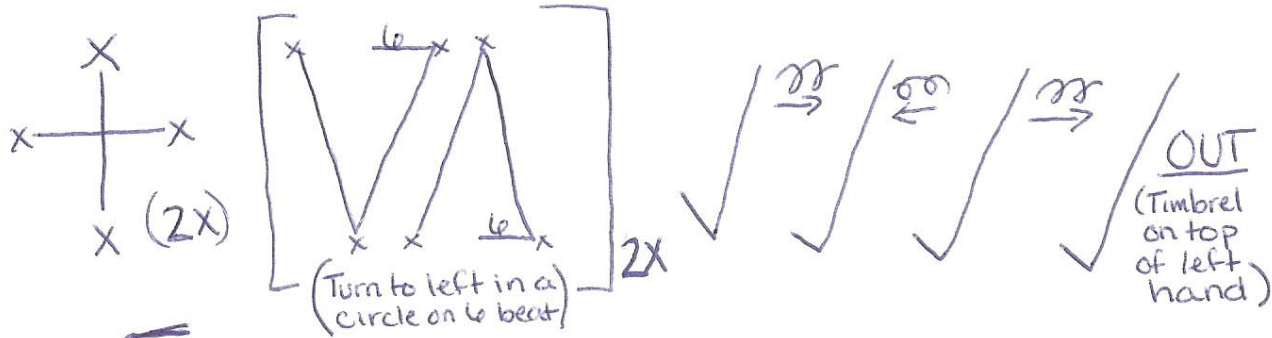 X
x x
X (2X)
x 6 x x
x x 6 x
2X
(Turn to left in a
circle on 6 beat)
OUT
(Timbrel
on top
of left
hand)